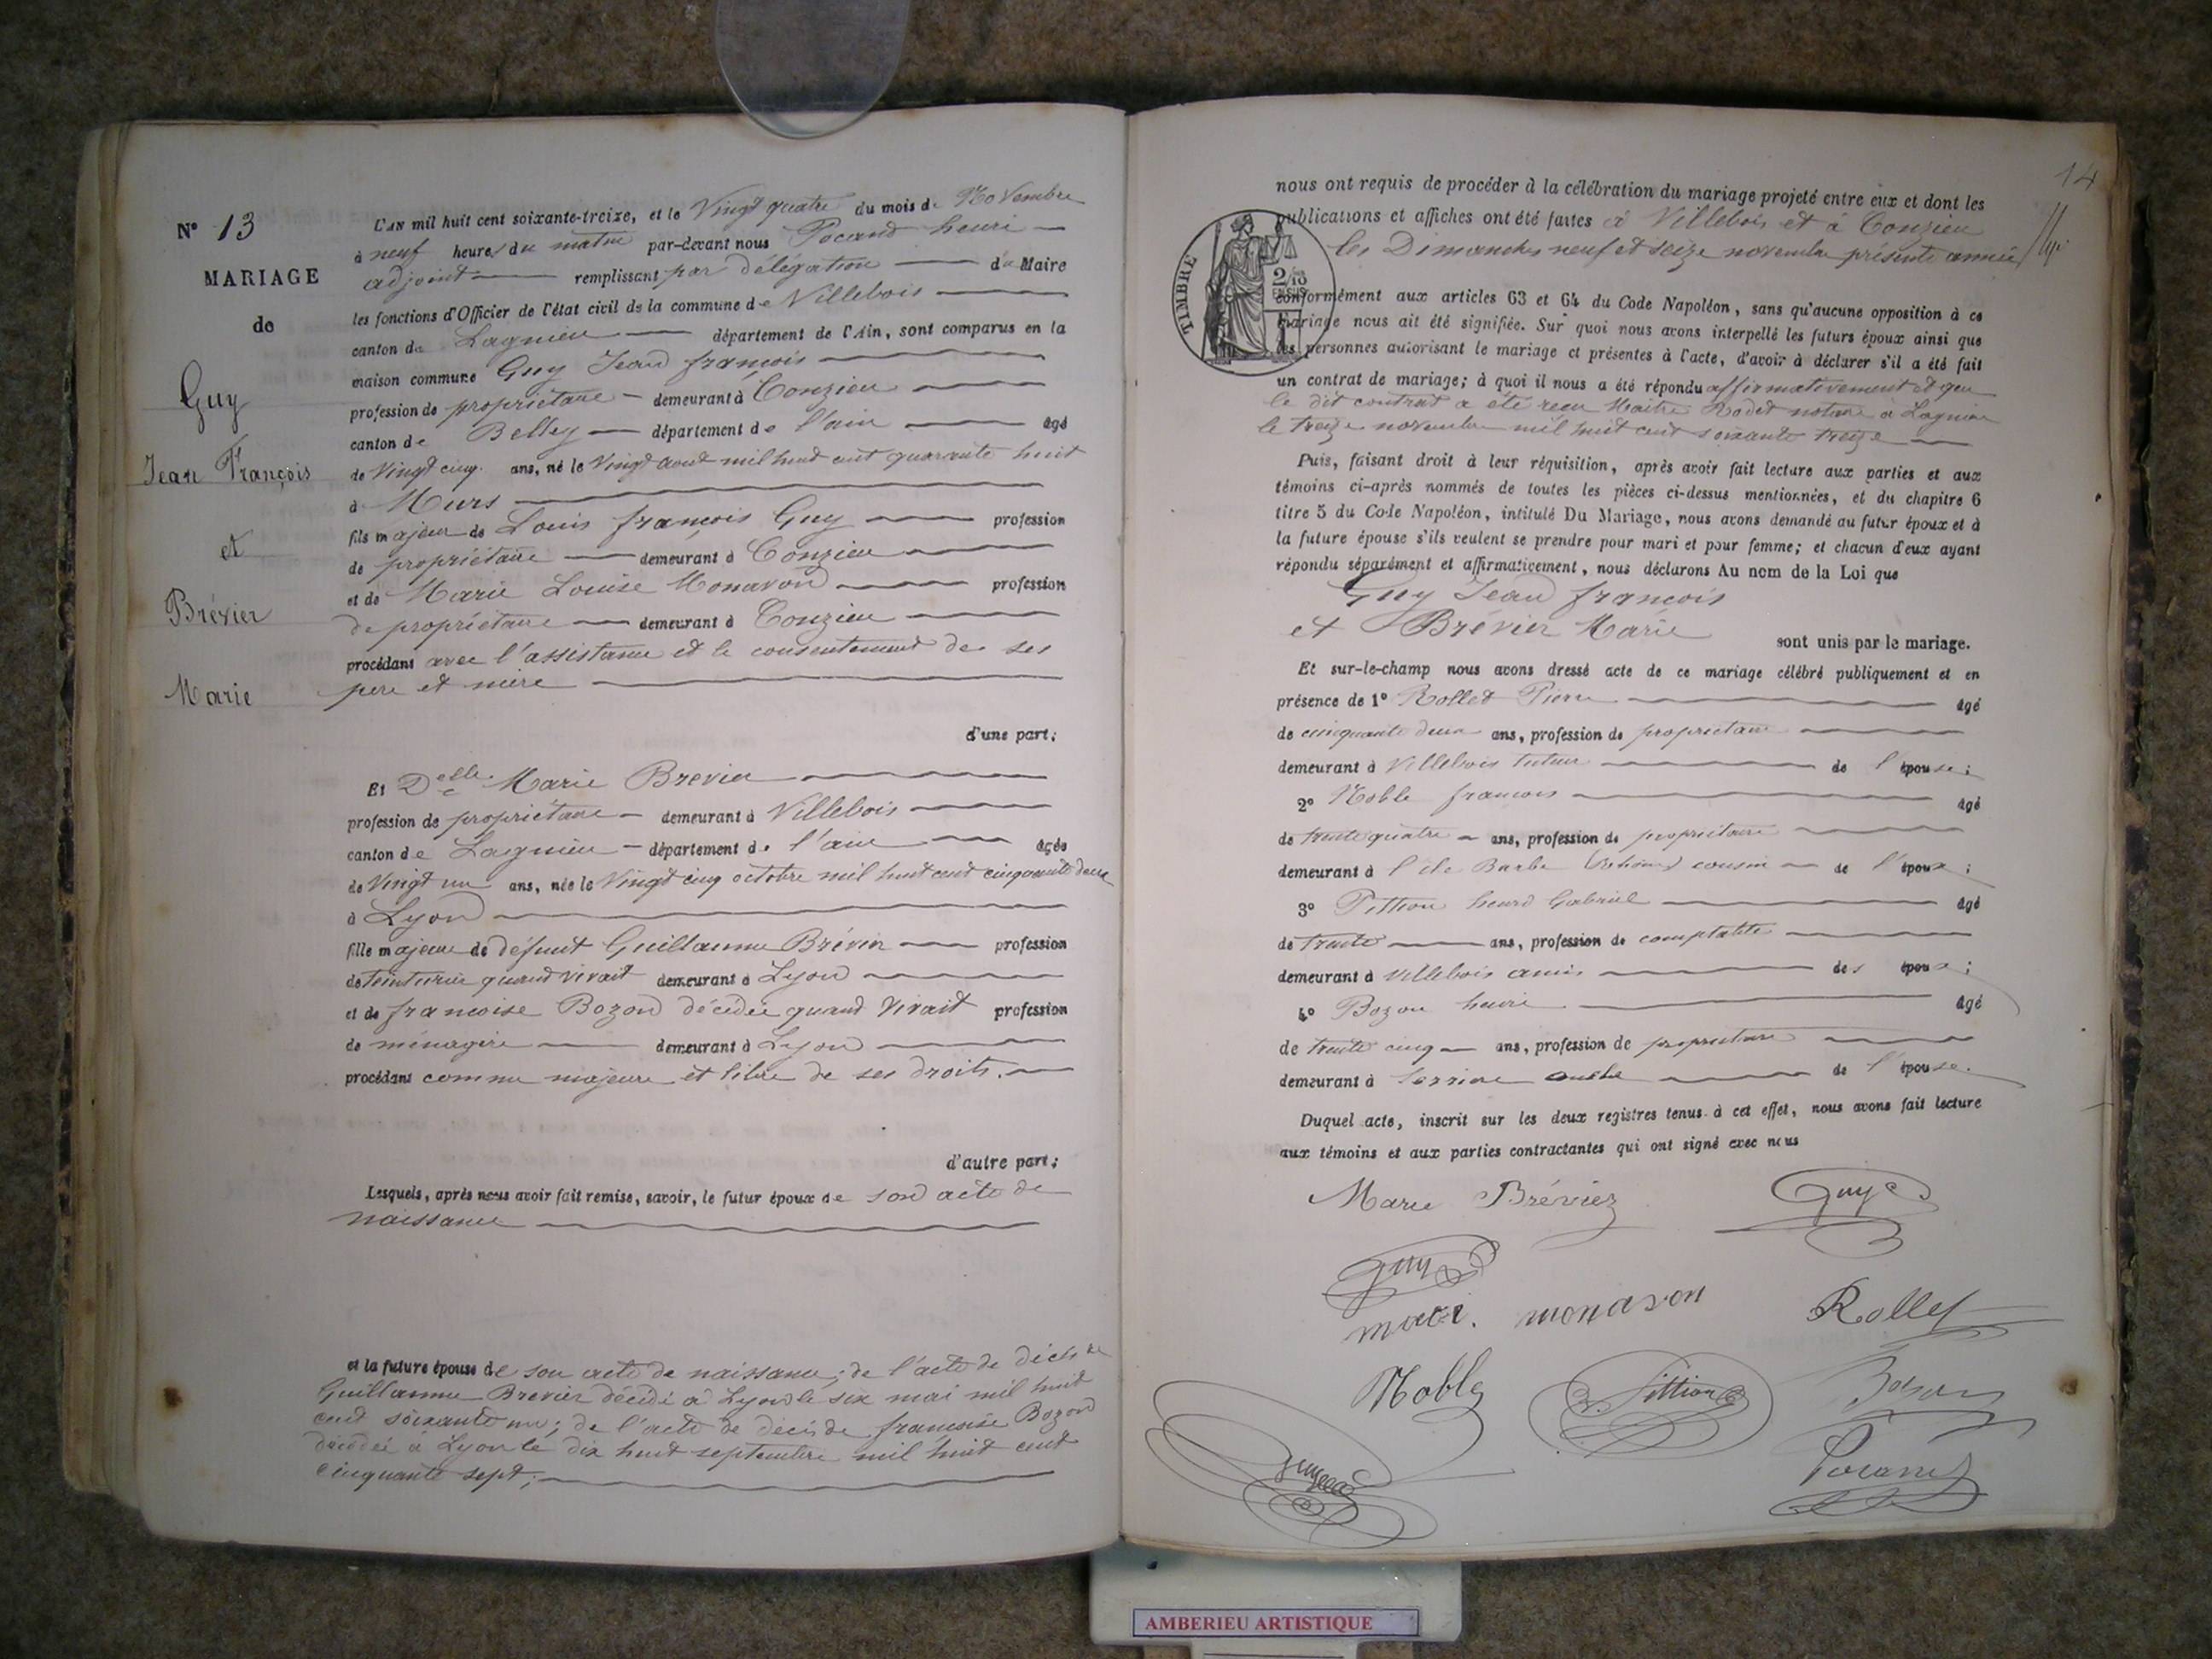 N° 13
MARIAGE
de
Guy
Jean François
et
Brévier
Marie
L'AN mil huit cent soixante-treize, et le Vingt quatre du mois de Novembre
à neuf heures du matin par-devant nous Pocand henri
adjoint remplissant par délégation du Maire
les fonctions d'Officier de l'état civil de la commune de Villebois
canton de Lagnieu département de l'Ain, sont comparus en la
maison commune Guy Jean françois
profession de propriétaire demeurant à Conzieu
canton de Belley département de l'ain âgé
de Vingt cinq ans, né le Vingt aout mil huit cent quarante huit
à Murs
fils majeur de Louis françois Guy profession
de propriétaire demeurant à Conzieu
et de Marie Louise Monavon profession
de propriétaire demeurant à Conzieu
procédant avec l'assistance et le consentement de ses
pere et mère
d'une part;
Et Delle Marie Brevier
profession de propriétaire demeurant à Villebois
canton de Lagnieu département de l'ain âgée
de Vingt un ans, née le Vingt cinq octobre mil huit cent cinquante deux
à Lyon
fille majeure de défunt Guillaume Brévier profession
de teinturier quand vivait demeurant à Lyon
et de françoise Bozon décédée quand vivait profession
de ménagère demeurant à Lyon
procédant comme majeure et libre de ses droits.
d'autre part;
Lesquels, après nous avoir fait remise, savoir, le futur époux de son acte de
naissance
et la future épouse de son acte de naissance; de l'acte de décès de
Guillaume Brevier décédé à Lyon le six mai mil huit
cent soixante un; de l'acte de décès de françoise Bozon
décédée à Lyon le dix huit septembre mil huit cent
cinquante sept;
14
nous ont requis de procéder à la célébration du mariage projeté entre eux et dont les
publications et affiches ont été faites à Villebois et à Conzieu
les Dimanches neuf et seize novembre présente année
TIMBRE
2/10
EN SUS
conformément aux articles 63 et 64 du Code Napoléon, sans qu'aucune opposition à ce
mariage nous ait été signifiée. Sur quoi nous avons interpellé les futurs époux ainsi que
les personnes autorisant le mariage et présentes à l'acte, d'avoir à déclarer s'il a été fait
un contrat de mariage; à quoi il nous a été répondu affirmativement et que
le dit contrat a été recu Maitre Rodet notaire à Lagnieu
le treize novembre mil huit cent soixante treize
Puis, faisant droit à leur réquisition, après avoir fait lecture aux parties et aux
témoins ci-après nommés de toutes les pièces ci-dessus mentionnées, et du chapitre 6
titre 5 du Code Napoléon, intitulé Du Mariage, nous avons demandé au futur époux et à
la future épouse s'ils veulent se prendre pour mari et pour femme; et chacun d'eux ayant
répondu séparément et affirmativement, nous déclarons Au nom de la Loi que
Guy Jean françois
et Brévier Marie sont unis par le mariage.
Et sur-le-champ nous avons dressé acte de ce mariage célébré publiquement et en
présence de 1° Rollet Pierre âgé
de cinquante deux ans, profession de propriétaire
demeurant à Villebois tuteur de l'épouse;
2° Noble francois âgé
de trente quatre ans, profession de propriétaire
demeurant à l'ile Barbe (Rhône) cousin de l'époux;
3° Pittion henri Gabriel âgé
de trente ans, profession de comptable
demeurant à Villebois amis des époux;
4° Bozon henri âgé
de trente cinq ans, profession de propriétaire
demeurant à de l'épouse.
Duquel acte, inscrit sur les deux registres tenus à cet effet, nous avons fait lecture
aux témoins et aux parties contractantes qui ont signé avec nous
Marie Bréviez Guy
Guy
mari. monavon Rollet
Noble Pittion Bozon
Pocand
AMBERIEU ARTISTIQUE